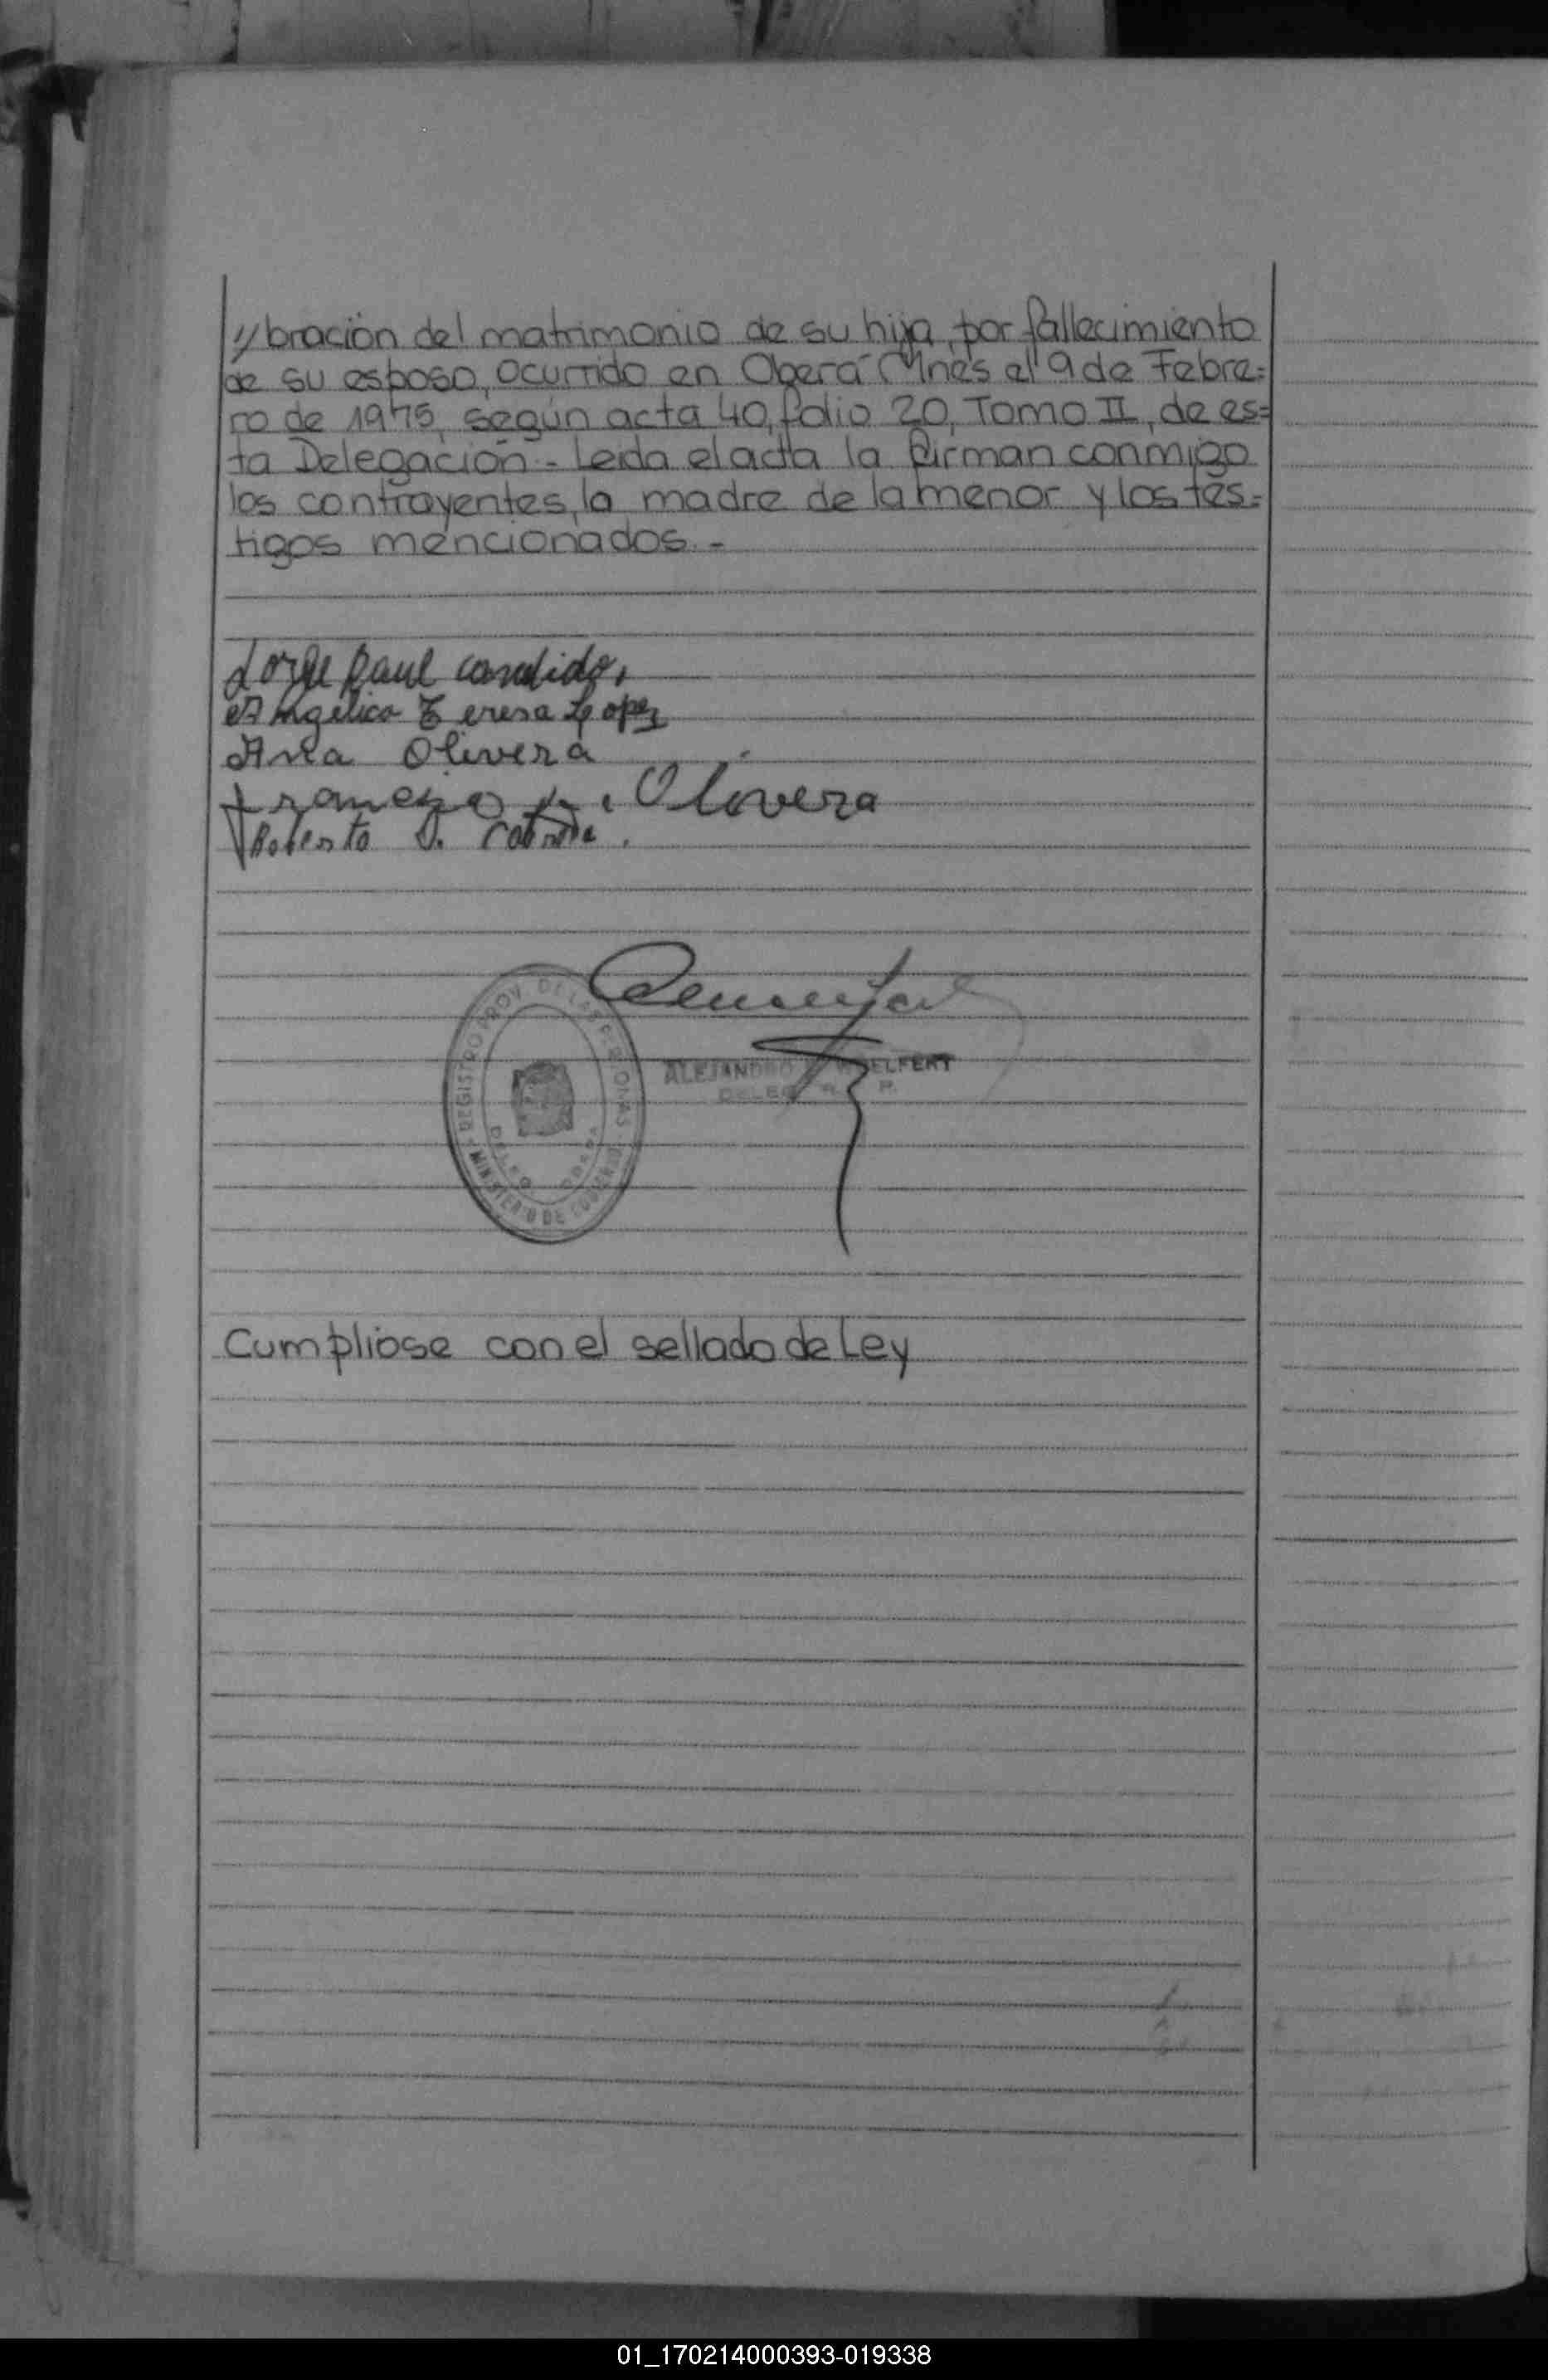 //bración del matrimonio de su hija, por fallecimiento
de su esposo, ocurrido en Oberá Mnes el 9 de Febre=
ro de 1975, según acta 40, folio 20, Tomo II, de es=
ta Delegación.- Leida el acta la firman conmigo
los contrayentes, la madre de la menor y los tes=
tigos mencionados.-
Jorge Raul candido,
Angelica Teresa Lopez
Ana Olivera
Olivera
Roberto
REGISTRO PROV. DE LAS PERSONAS
MINISTERIO DE GOBIERNO
DELEG. OBERA
ALEJANDRO ELFERT
DELEG. R. P.
Cumpliose con el sellado de Ley
01_170214000393-019338